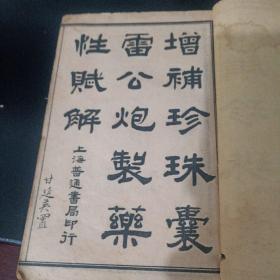 增補珍珠囊
雷公炮製藥
性賦解
上海普通書局印行